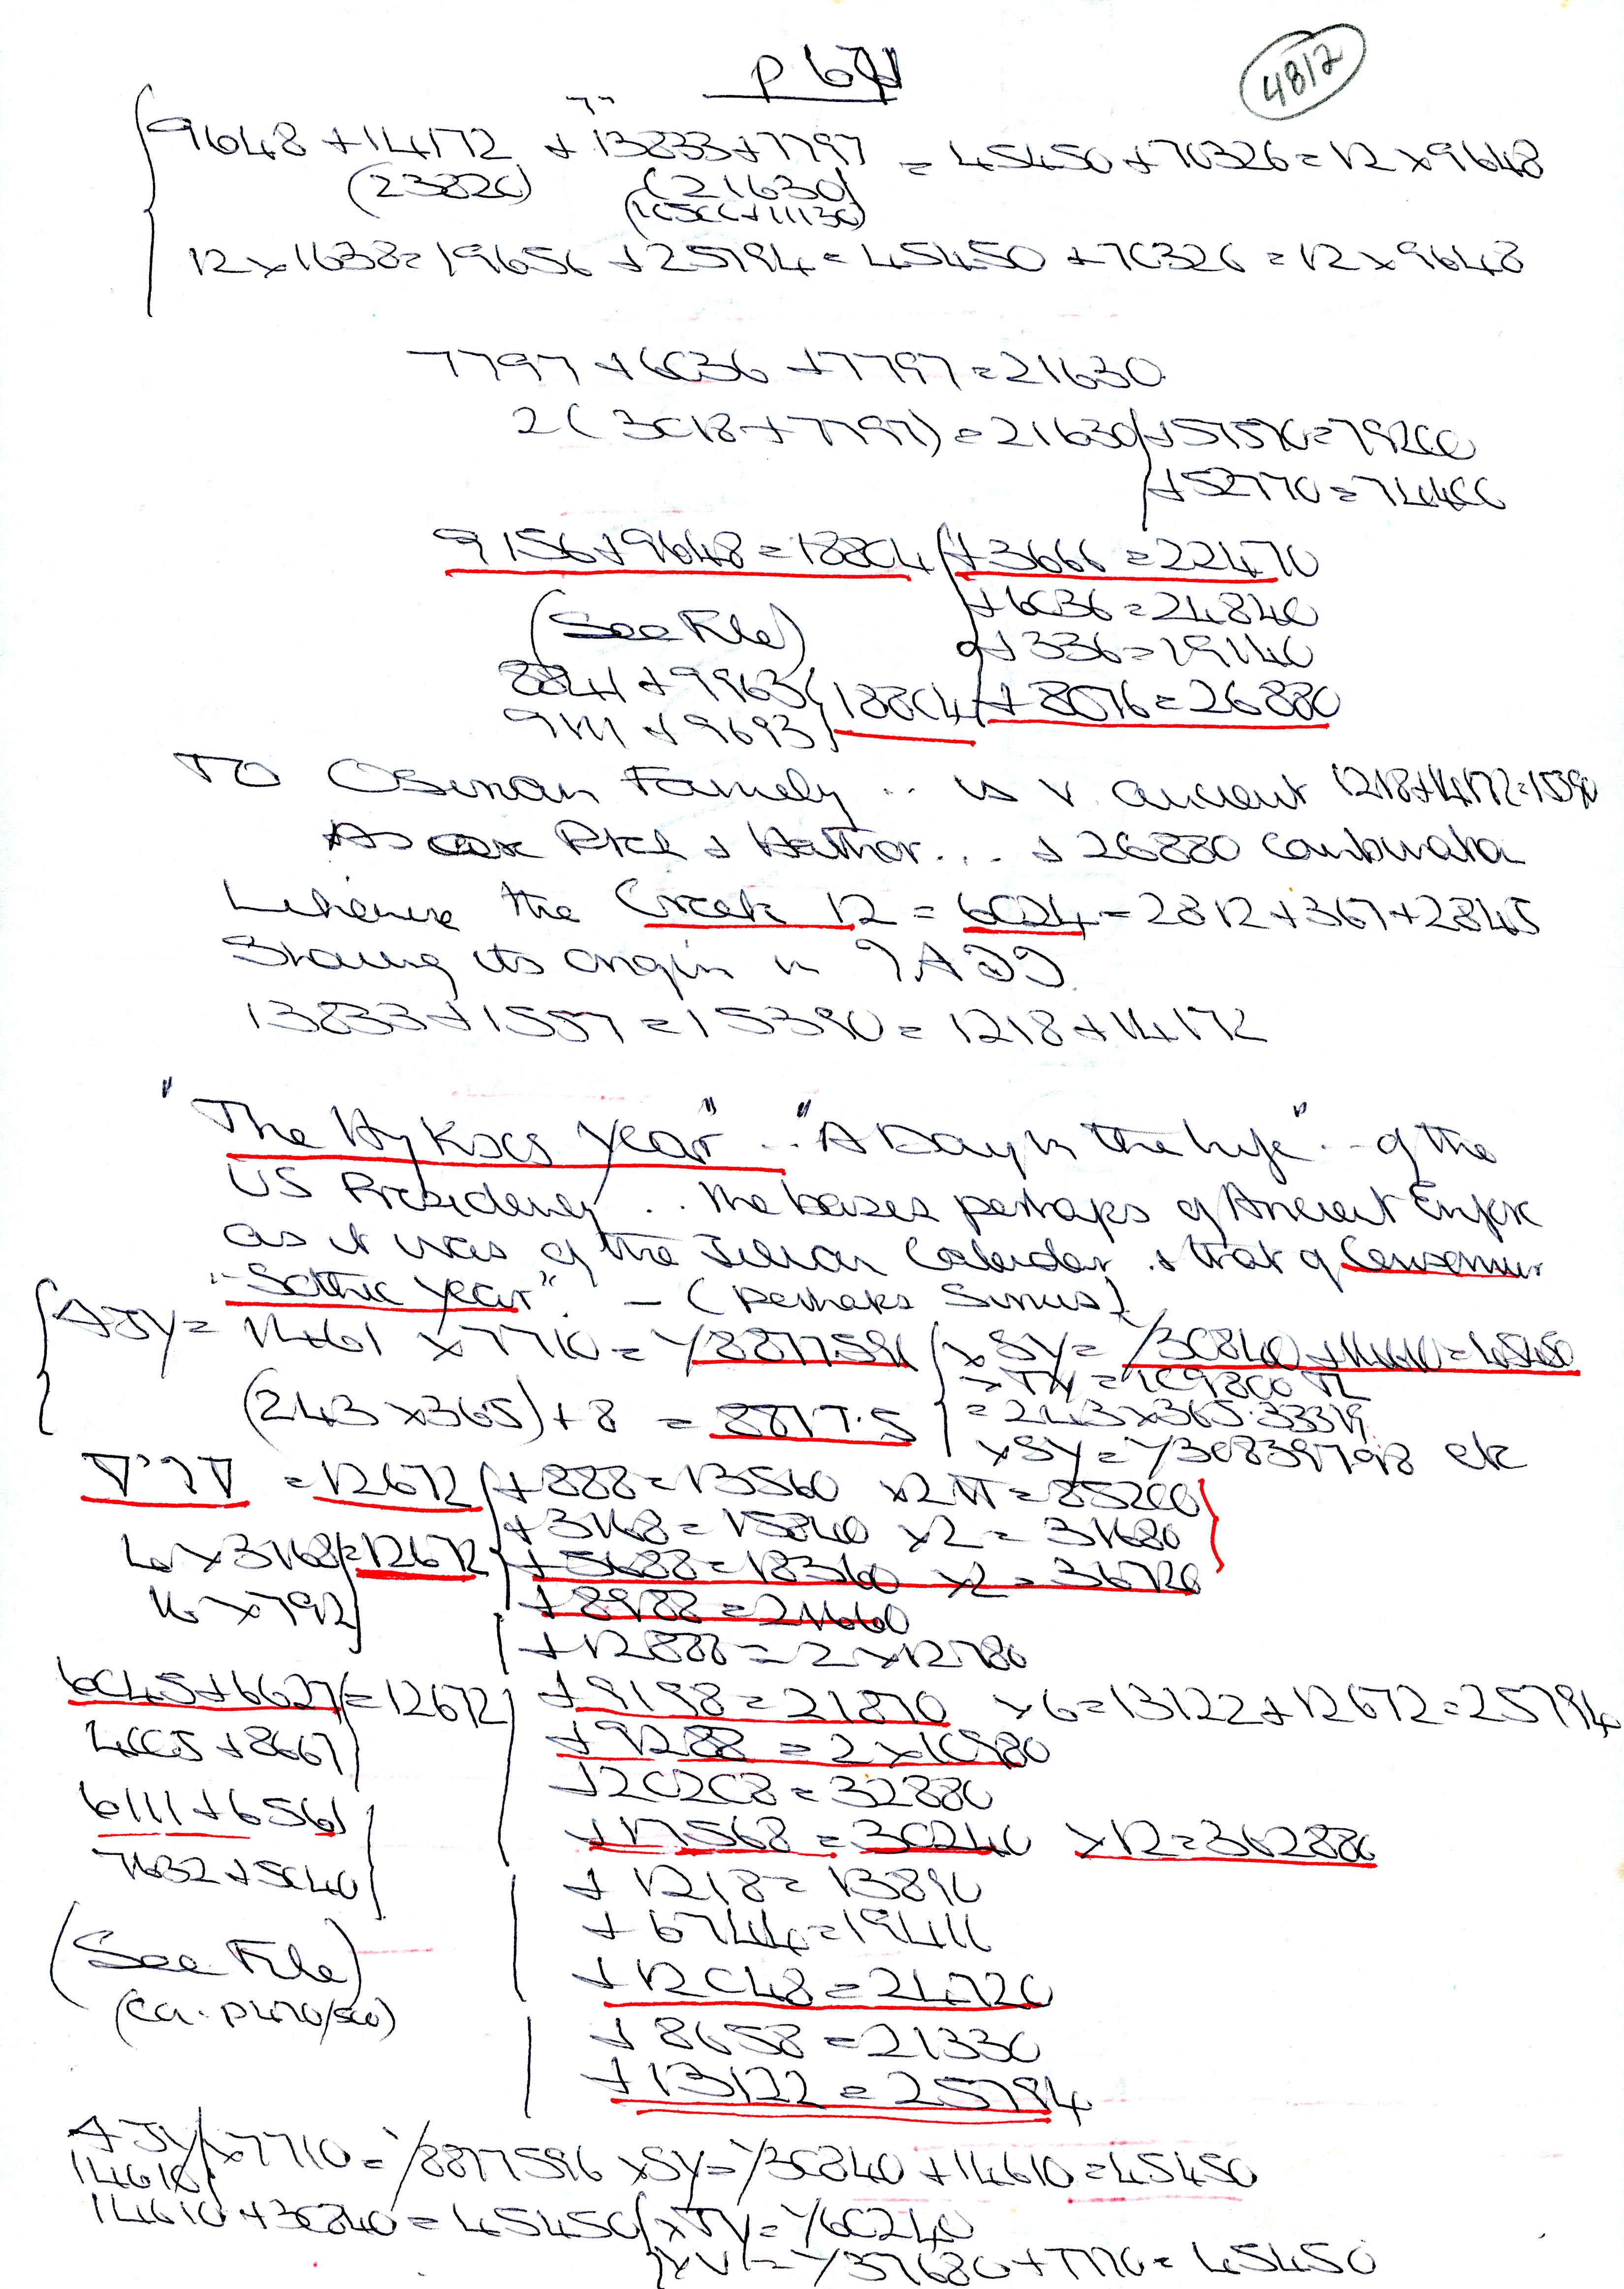 4812
9648 + 14172 + 13833 + 7797 = 45450 + 70326 = 12 x 9648
(23820) (21630)
(10500 + 11130)
12 x 1638 = 19656 + 25794 = 45450 + 70326 = 12 x 9648
7797 + 6036 + 7797 = 21630
2 ( 3018 + 7797) = 21630 + 57570 = 79200
+ 52770 = 74400
9156 + 9648 = 18804 + 3666 = 22470
+ 6036 = 24840
(See File) + 336 = 19140
8841 + 9963 18804 + 8076 = 26880
9111 + 9693
TO Osirian Family .. is v. ancient 1218 + 14172 = 15390
Ptah + Hathor ... + 26880 combination
Likewise the Greek 12 = 6024 = 2812 + 367 + 2845
Showing its origin in
13833 + 1557 = 15390 = 1218 + 14172
"The Hyksos Year" .. "A Day in the Life" .. of the
US Presidency .. the bases perhaps of Ancient Empire
as it was of the Julian Calendar + that of Censorinus
"Sothic Year" - (perhaps Sirius)
AJY = 1461 x 7710 = 1/8877596 x SY = 1/30840 + 14610 = 45450
(243 x 365) + 8 = 8877.5 = 243 x 365.33319
x SY = 1/308397.98 etc
= 12672 + 888 = 13560 x 2π = 85200
+ 3168 = 15840 x 2 = 31680
4 x 3168 = 12672 + 5688 = 18360 x 2 = 36720
16 x 792 + 8988 = 21660
+ 12888 = 2 x 12780
6045 + 6627 = 12672 + 9198 = 21870 x 6 = 13122 + 12672 = 25794
4005 + 8667 + 9288 = 2 x 10980
+ 20208 = 32880
6111 + 6561 + 17568 = 30240 x 12 = 362880
7632 + 5040 + 1218 = 13890
+ 6744 = 19416
(See File) + 12048 = 24720
(ca. p 470/500) + 8658 = 21330
+ 13122 = 25794
AJY x 7710 = 1/8877596 x SY = 1/30840 + 14610 = 45450
14610
14610 + 30840 = 45450 x TY = 1/60240
1/37680 + 7770 = 45450